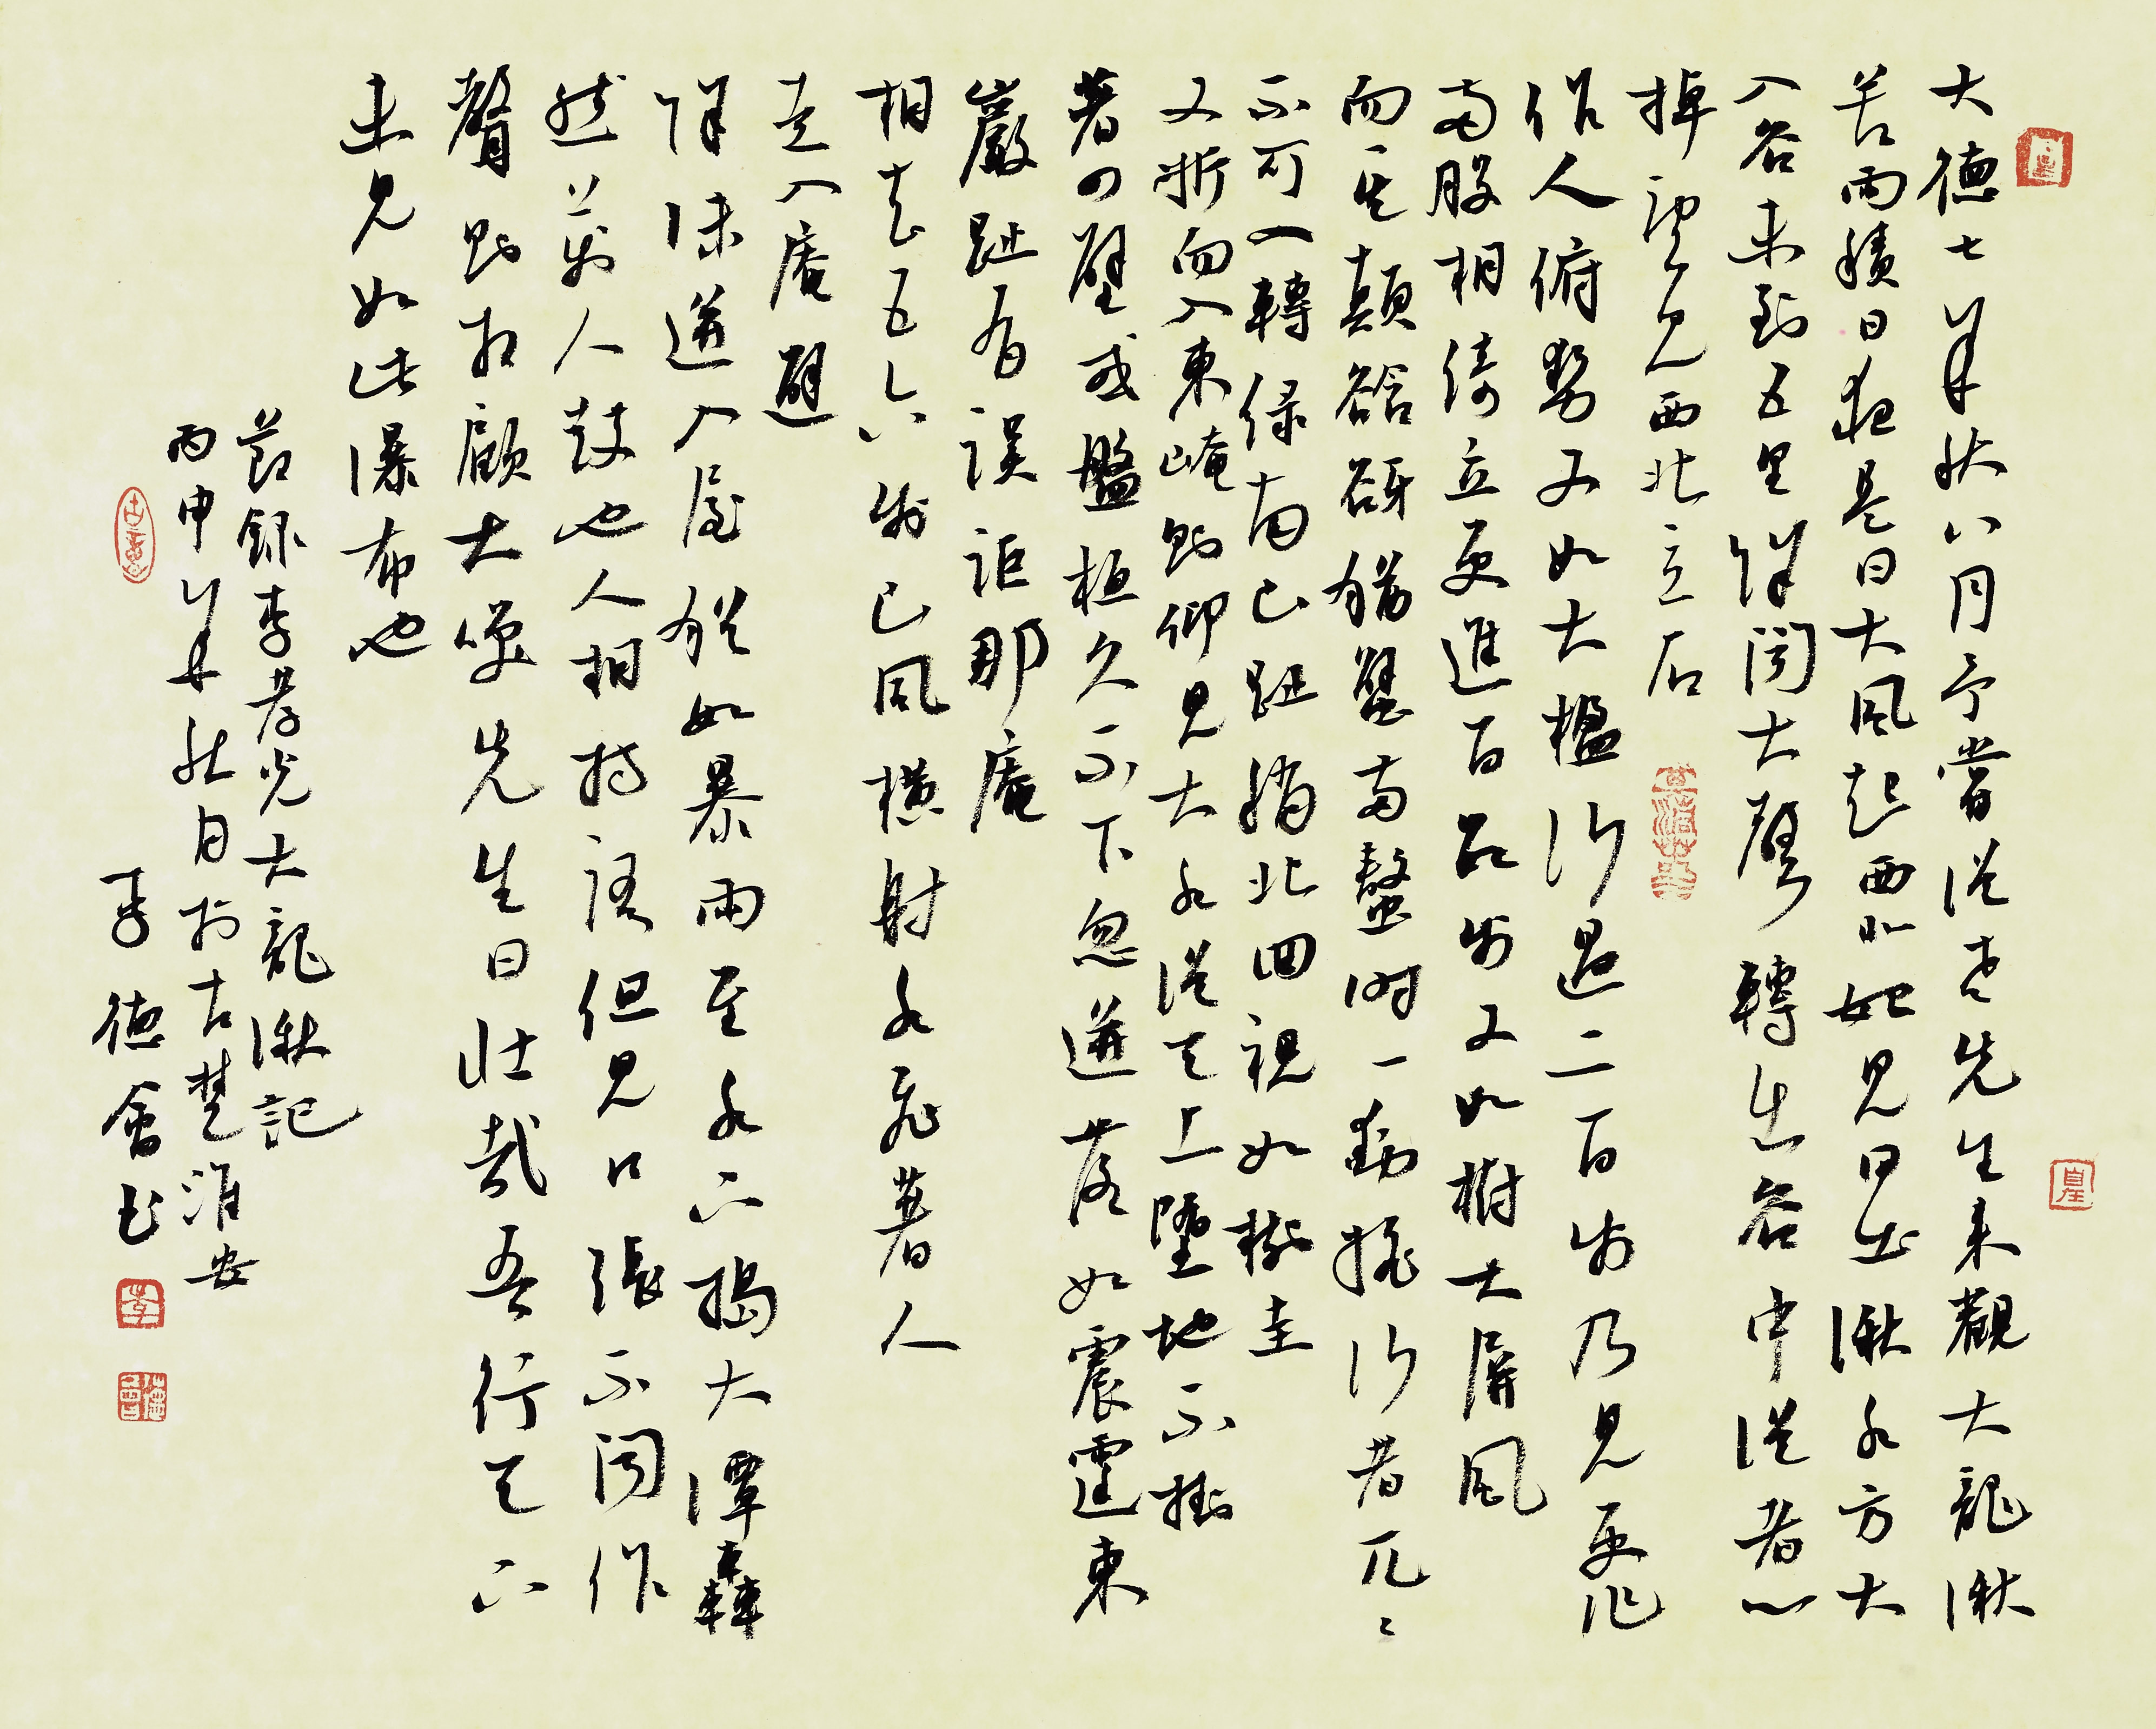 大德七年秋八月予嘗從老先生來觀大龍湫
苦雨積日夜是日大風起西北始見日出湫水方大
入谷未到五里餘聞大聲轉出谷中從者心
掉望見西北立石
作人俯勢又如大楹行過二百步乃見更作
兩股相倚立更進百數步又如樹大屏風
而其顛谽谺猶蟹兩螯時一動搖行者兀々
不可入轉緣南已趾稍北回視如樹圭
又折而入東崦則仰見大水從天上墮地不掛
著四壁或盤桓久不下忽迸落如震霆東
巖趾有諾詎那庵
相去五六步已風橫射水飛著人
走入庵避
餘沫迸入屋猶如暴雨至水下搗大潭轟
然萬人鼓也人相持語但見口張不聞作
聲則相顧大笑先生曰壯哉吾行天下
未見如此瀑布也
節錄李孝光大龍湫記
丙申年秋月於古楚淮安
李德會書
李
德會